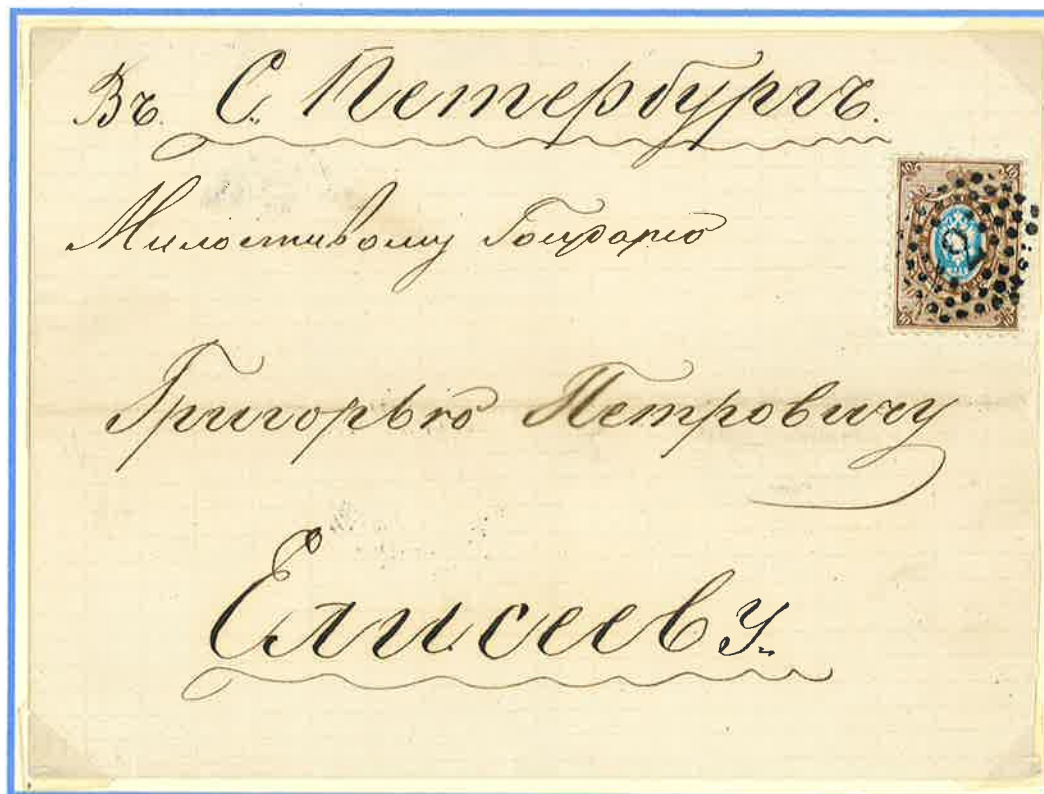 Въ С. Петербургъ.
Милостивому Государю
Григорью Петровичу
Елисееву.